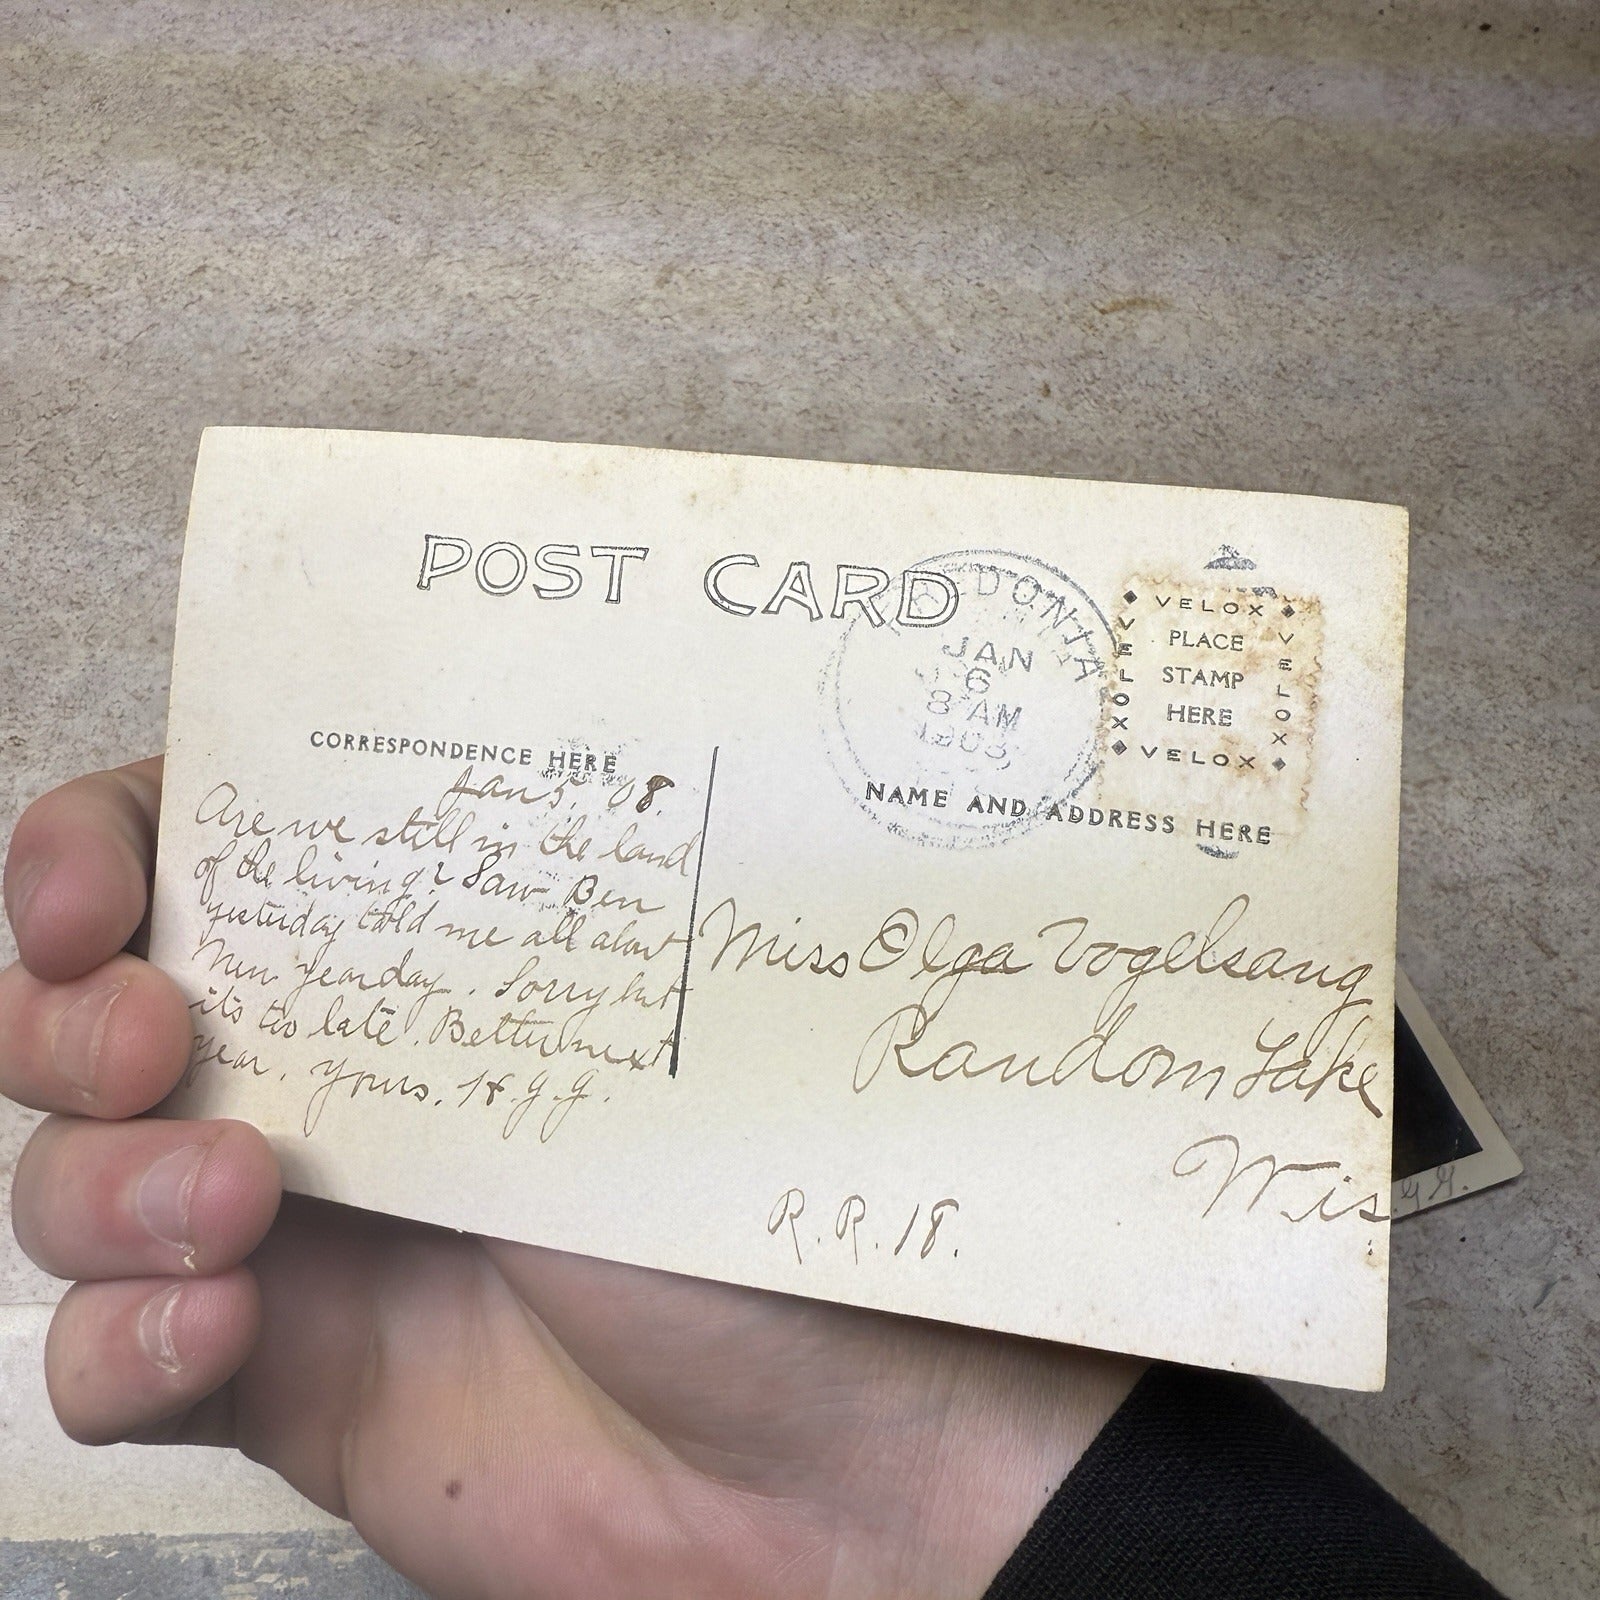 POST CARD
EDONIA
JAN
6
8 AM
1908
VELOX
VELOX
PLACE
STAMP
HERE
VELOX
VELOX
CORRESPONDENCE HERE
NAME AND ADDRESS HERE
Jan 5. 08.
Are we still in the land
of the living? Saw Ben
yesterday told me all about
New Yearday. Sorry but
its too late. Better next
year. Yours. H.G.G.
Miss Olga Vogelsang
Random Lake
Wis
R.R. 18.